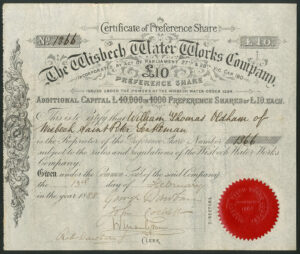 Certificate of Preference Share
No. 1366 £10.
The Wisbech Water Works Company.
INCORPORATED BY ACT OF PARLIAMENT 27 & 28 VIC. CAP.
£10
PREFERENCE SHARE
ISSUED UNDER THE POWERS OF THE WISBECH WATER ORDER
ADDITIONAL CAPITAL £40,000 IN 4000 PREFERENCE SHARES OF £10. EACH.
This is to certify that William Thomas Oldham of
Wisbech Saint Peter Gentleman
is the Proprietor of the Preference Share Number 1366
subject to the Rules and regulations of the Wisbech Water Works
Company.
Given under the Common Seal of the said Company
the 13th day of February
in the year 1888
George
John
CLERK.